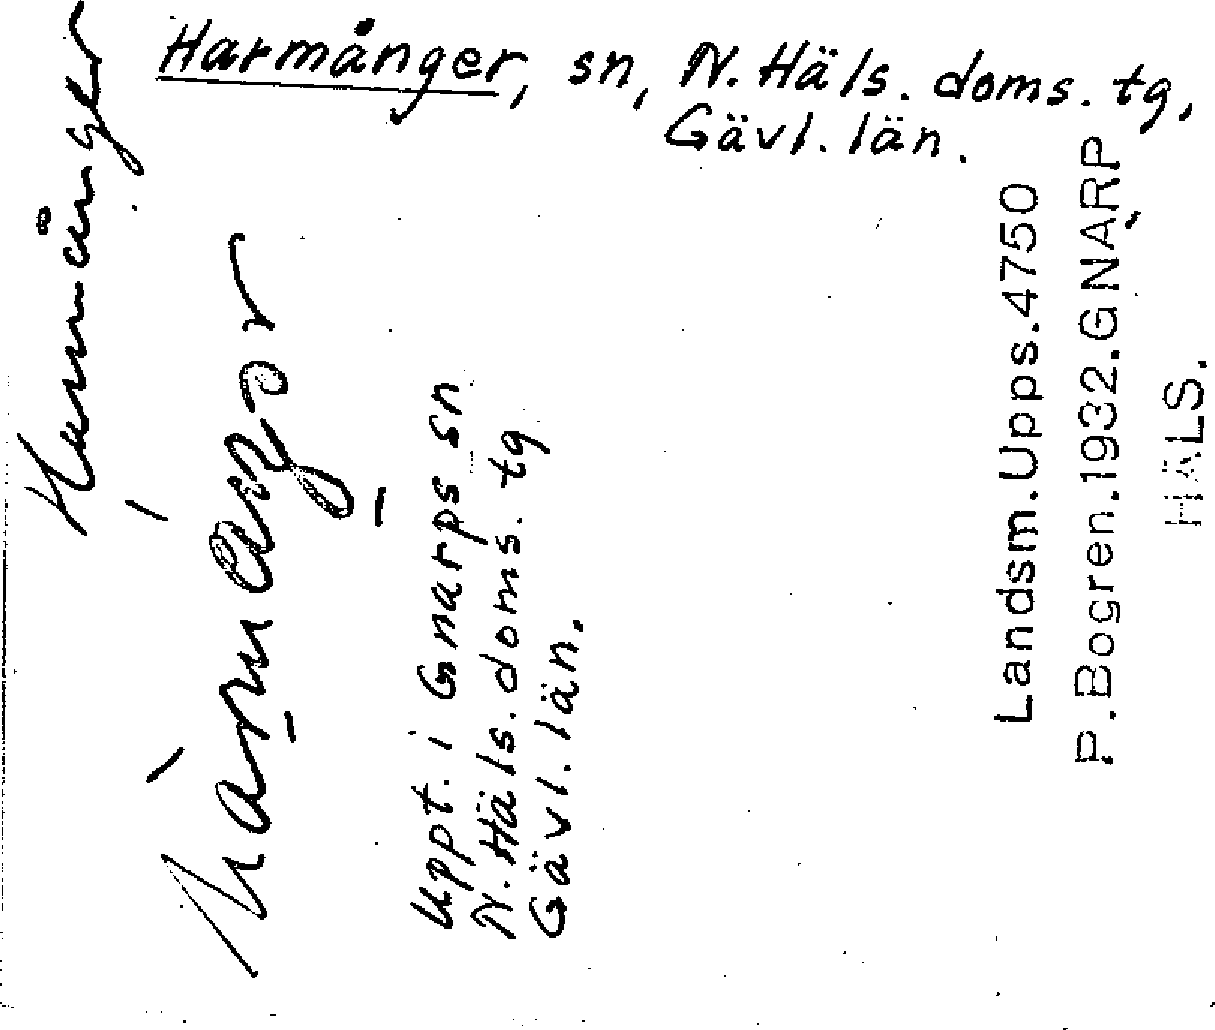 Harmånger, sn, N. Häls. doms. tg,
Gävl. län.
Harmånger
Uppt. i Gnarps sn
N. Häls. doms. tg
Gävl. län.
Landsm. Upps. 4750
P. Bogren. 1932. GNARP
HÄLS.